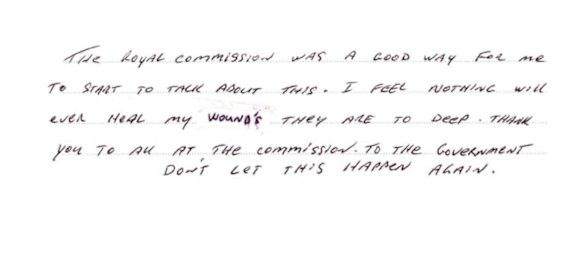 THE ROYAL COMMISSION WAS A GOOD WAY FOR ME
TO START TO TALK ABOUT THIS. I FEEL NOTHING WILL
EVER HEAL MY WOUND'S THEY ARE TO DEEP. THANK
YOU TO ALL AT THE COMMISSION. TO THE GOVERNMENT
DON'T LET THIS HAPPEN AGAIN.